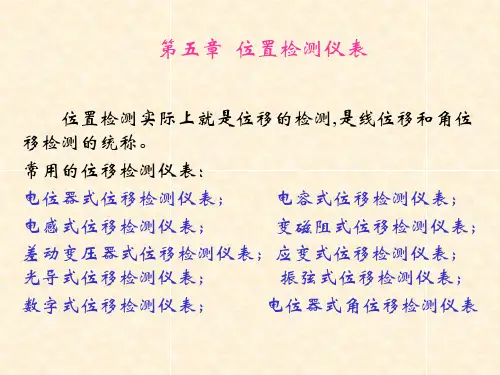 第五章 位置检测仪表
位置检测实际上就是位移的检测,是线位移和角位
移检测的统称。
常用的位移检测仪表:
电位器式位移检测仪表; 电容式位移检测仪表;
电感式位移检测仪表; 变磁阻式位移检测仪表;
差动变压器式位移检测仪表; 应变式位移检测仪表;
光导式位移检测仪表; 振弦式位移检测仪表;
数字式位移检测仪表; 电位器式角位移检测仪表